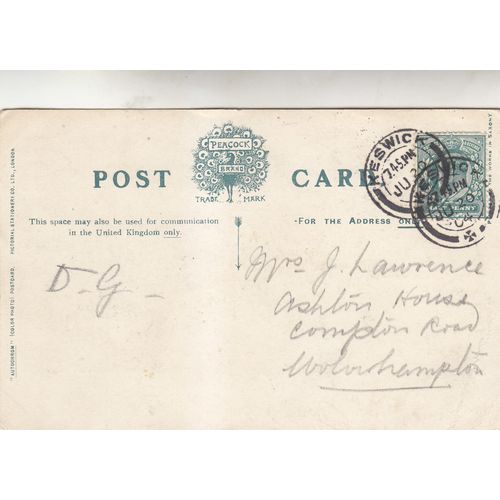 PEACOCK
BRAND
TRADE MARK
POST CARD
This space may also be used for communication
in the United Kingdom only.
FOR THE ADDRESS ONLY
D. G.
Mrs J. Lawrence
Ashton House
Compton Road
Wolverhampton
KESWICK
7.45PM
JU 20
04
"AUTOCHROM" (COLOR PHOTO) POSTCARD. PICTORIAL STATIONERY CO., LTD., LONDON.
WORKS IN SAXONY